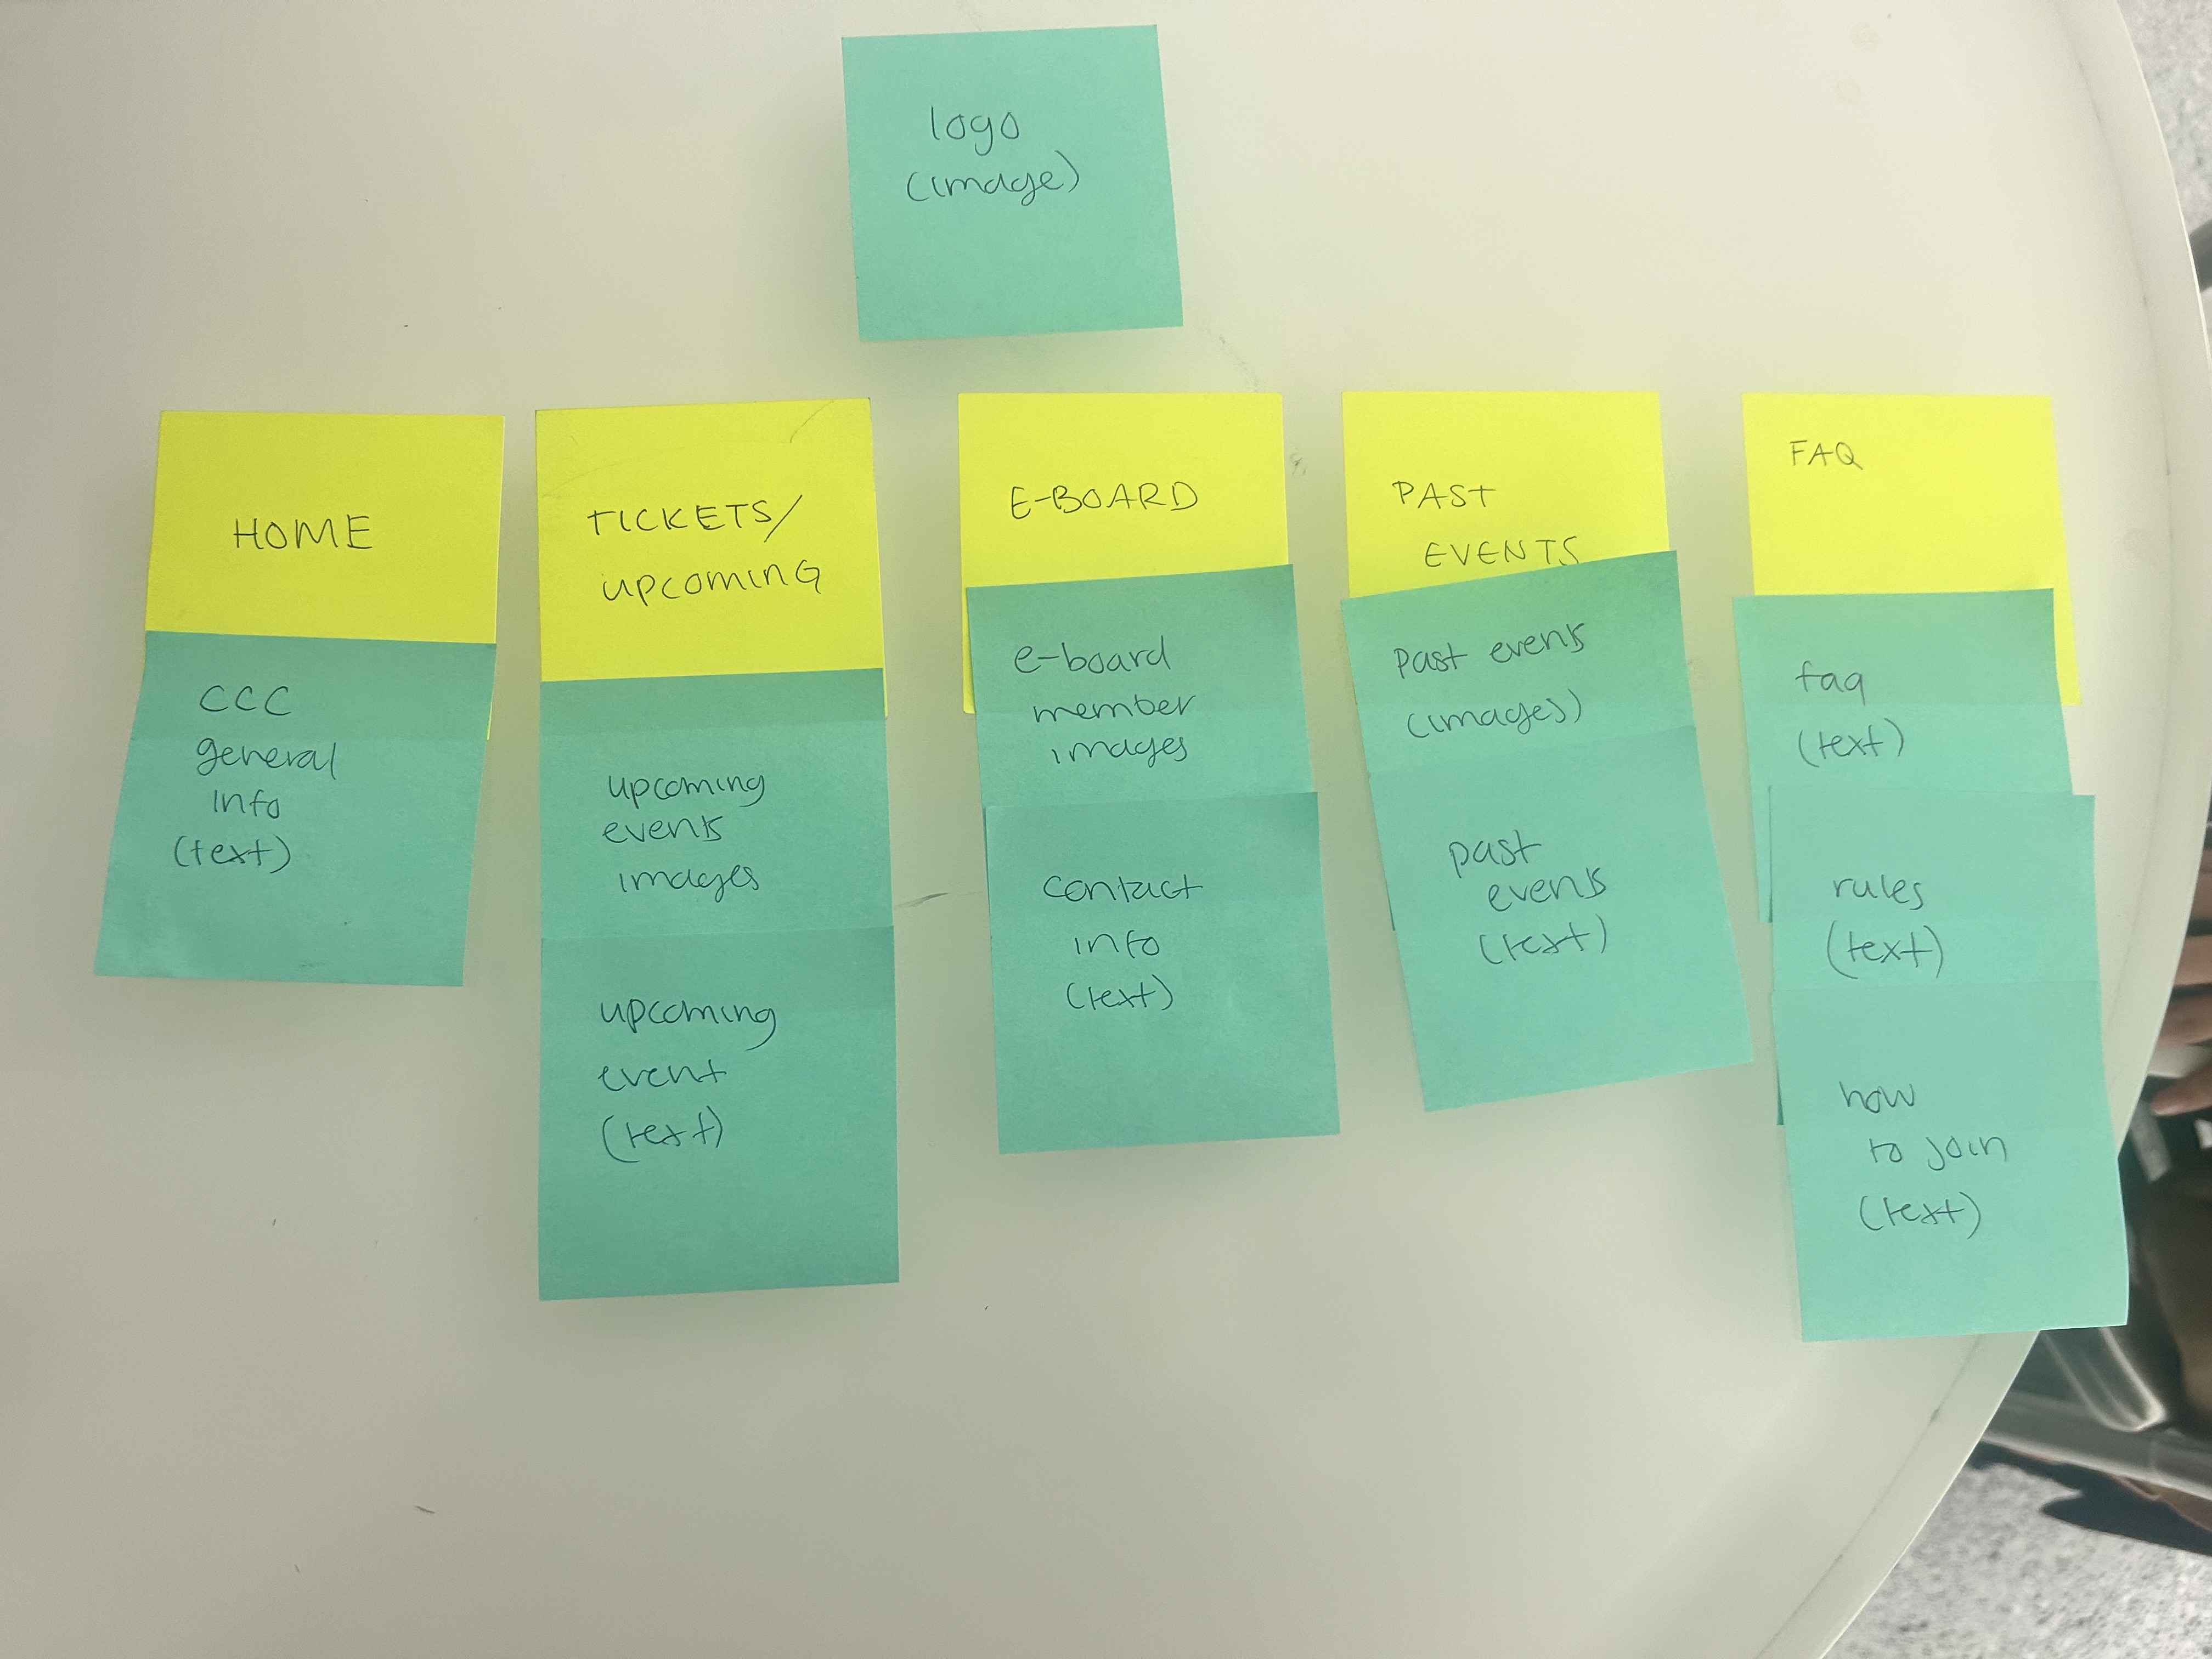 logo
(image)
HOME
CCC
general
info
(text)
TICKETS/
UPCOMING
upcoming
events
images
upcoming
event
(text)
E-BOARD
e-board
member
images
contact
info
(text)
PAST
EVENTS
past events
(images)
past
events
(text)
FAQ
faq
(text)
rules
(text)
how
to join
(text)